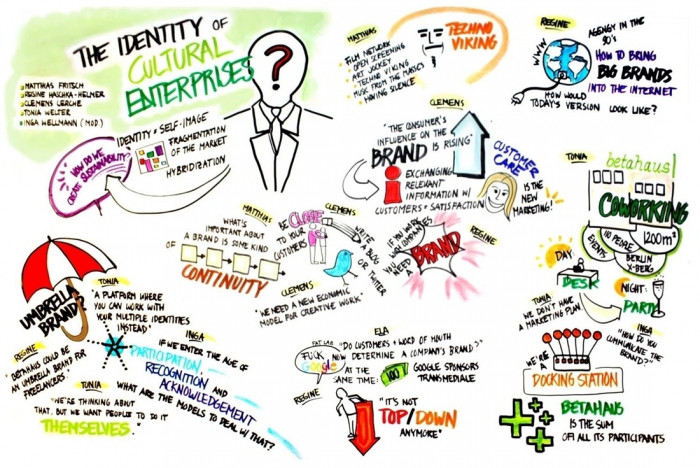 THE IDENTITY OF
CULTURAL
ENTERPRISES
?
MATTHIAS FRITSCH
REGINE HASCHKA-HELMER
CLEMENS LERCHE
TONIA WELTER
INGA WELLMANN (MOD.)
HOW DO WE
CREATE SUSTAINABILITY?
IDENTITY = SELF-IMAGE
FRAGMENTATION
OF THE MARKET
HYBRIDIZATION
MATTHIAS
FILM NETWORK
OPEN SCREENING
ART JOCKEY
TECHNO VIKING
MUSIC FROM THE MASSES
MAKING SILENCE
TECHNO
VIKING
REGINE
WWW
AGENCY IN THE
90's
HOW TO BRING
BIG BRANDS
INTO THE INTERNET
HOW WOULD
TODAY'S VERSION LOOK LIKE?
CLEMENS
"THE CONSUMER'S
INFLUENCE ON THE
BRAND IS RISING"
EXCHANGING
RELEVANT
INFORMATION W/
CUSTOMERS = SATISFACTION
CUSTOMER
CARE
IS THE
NEW
MARKETING!
TONIA
betahaus
COWORKING
EVENTS
110 PEOPLE
1200m²
BERLIN
X-BERG
DAY:
DESK
NIGHT:
PARTY
TONIA
WE DON'T HAVE
A MARKETING PLAN
INGA
"HOW DO YOU
COMMUNICATE THE
BRAND?"
WE'RE
A
DOCKING STATION
BETAHAUS
IS THE SUM
OF ALL ITS PARTICIPANTS
MATTHIAS
WHAT'S
IMPORTANT ABOUT
A BRAND IS SOME KIND
OF
CONTINUITY
CLEMENS
BE CLOSE
TO YOUR
CUSTOMERS
WRITE
A BLOG
OR TWITTER
CLEMENS
"WE NEED A NEW ECONOMIC
MODEL FOR CREATIVE WORK"
IF YOU HAVE
COMPANIES
YOU NEED
A
BRAND
REGINE
UMBRELLA
BRAND?
REGINE
"BETAHAUS COULD BE
AN UMBRELLA BRAND FOR
FREELANCERS"
TONIA
"A PLATFORM WHERE
YOU CAN WORK WITH
YOUR MULTIPLE IDENTITIES
INSTEAD"
INGA
IF WE ENTER THE AGE OF
PARTICIPATION,
RECOGNITION AND
ACKNOWLEDGEMENT
WHAT ARE THE MODELS TO DEAL W/ THAT?
TONIA
"WE'RE THINKING ABOUT
THAT. BUT WE WANT PEOPLE TO DO IT
THEMSELVES."
ELA
"DO CUSTOMERS + WORD OF MOUTH
NOW DETERMINE A COMPANY'S BRAND?"
FAT LAB
FUCK
Google
AT THE
SAME TIME:
100
GOOGLE SPONSORS
TRANSMEDIALE
REGINE
"IT'S NOT
TOP/DOWN
ANYMORE"